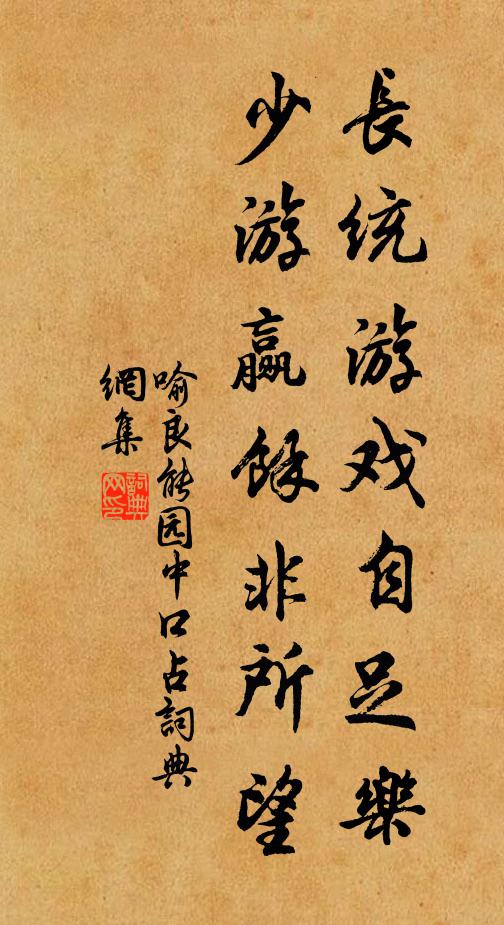 長统游戏自足樂
少游贏餘非所望
喻良能园中口占詞典
網集
詞典
网印